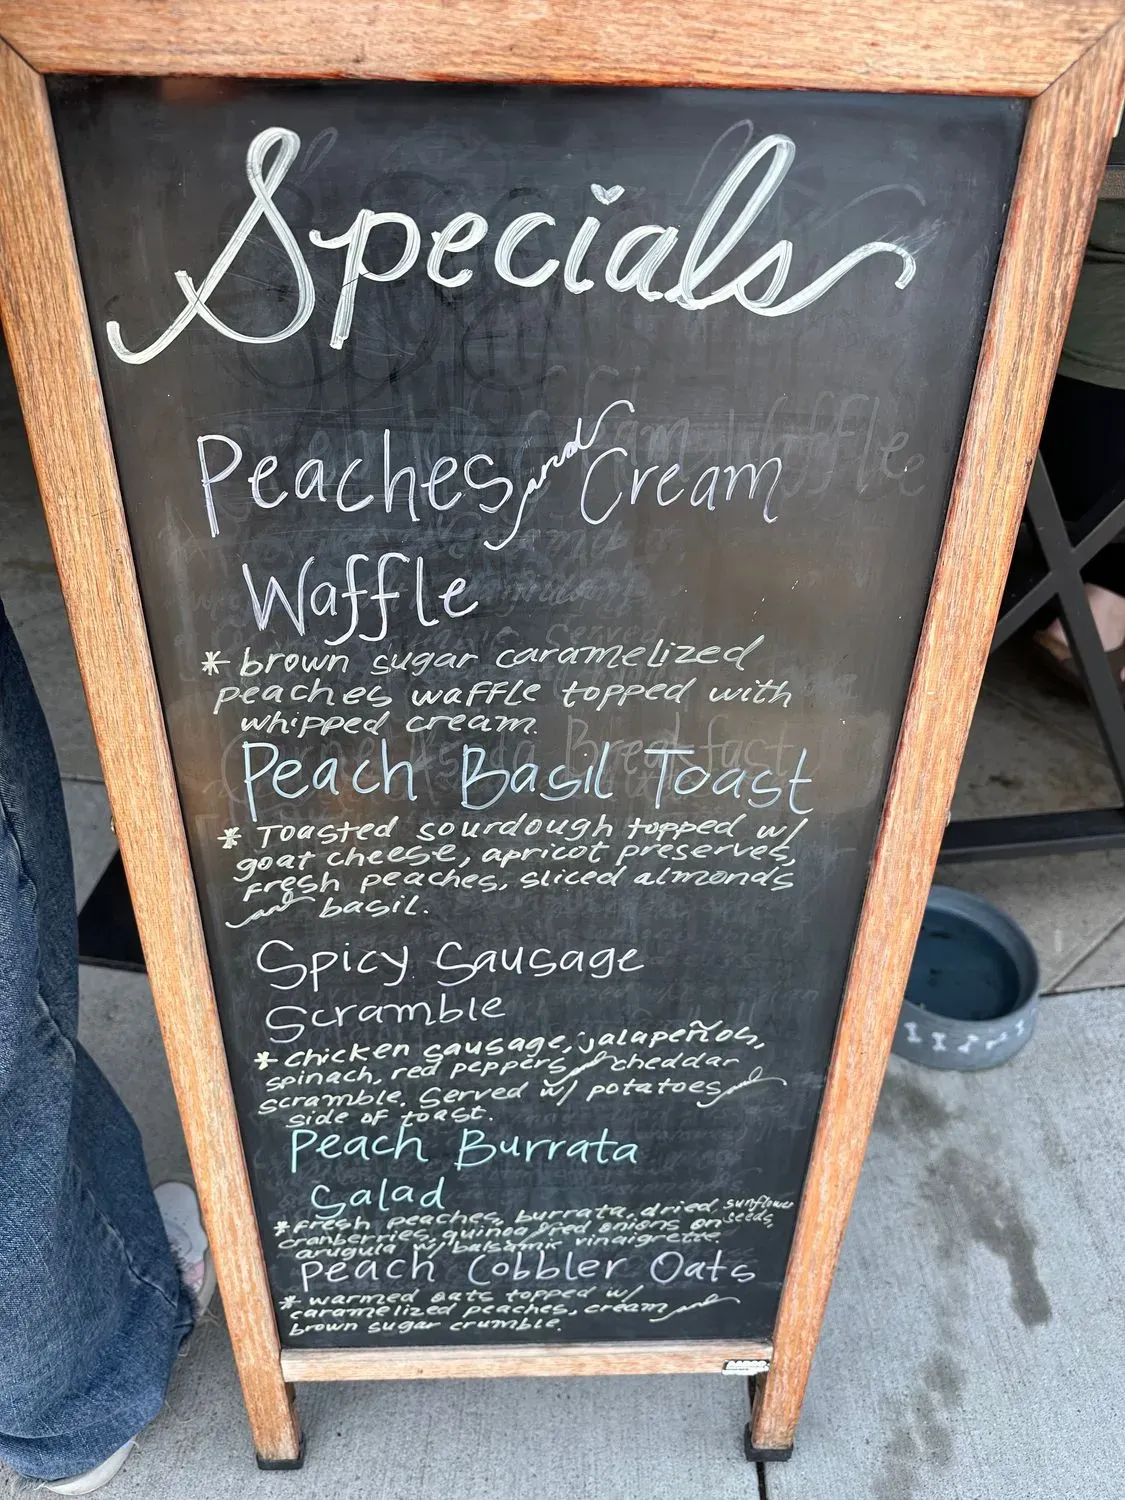 Specials
Peaches and Cream
Waffle
* brown sugar caramelized
peaches waffle topped with
whipped cream.
Peach Basil Toast
* Toasted sourdough topped w/
goat cheese, apricot preserves,
fresh peaches, sliced almonds
and basil.
Spicy Sausage
Scramble
* chicken sausage, jalapeños,
spinach, red peppers and cheddar
scramble. Served w/ potatoes and
side of toast.
Peach Burrata
Salad
* fresh peaches, burrata, dried sunflower seeds,
cranberries, quinoa, red onions on
arugula w/ balsamic vinaigrette
Peach Cobbler Oats
* warmed oats topped w/
caramelized peaches, cream and
brown sugar crumble.